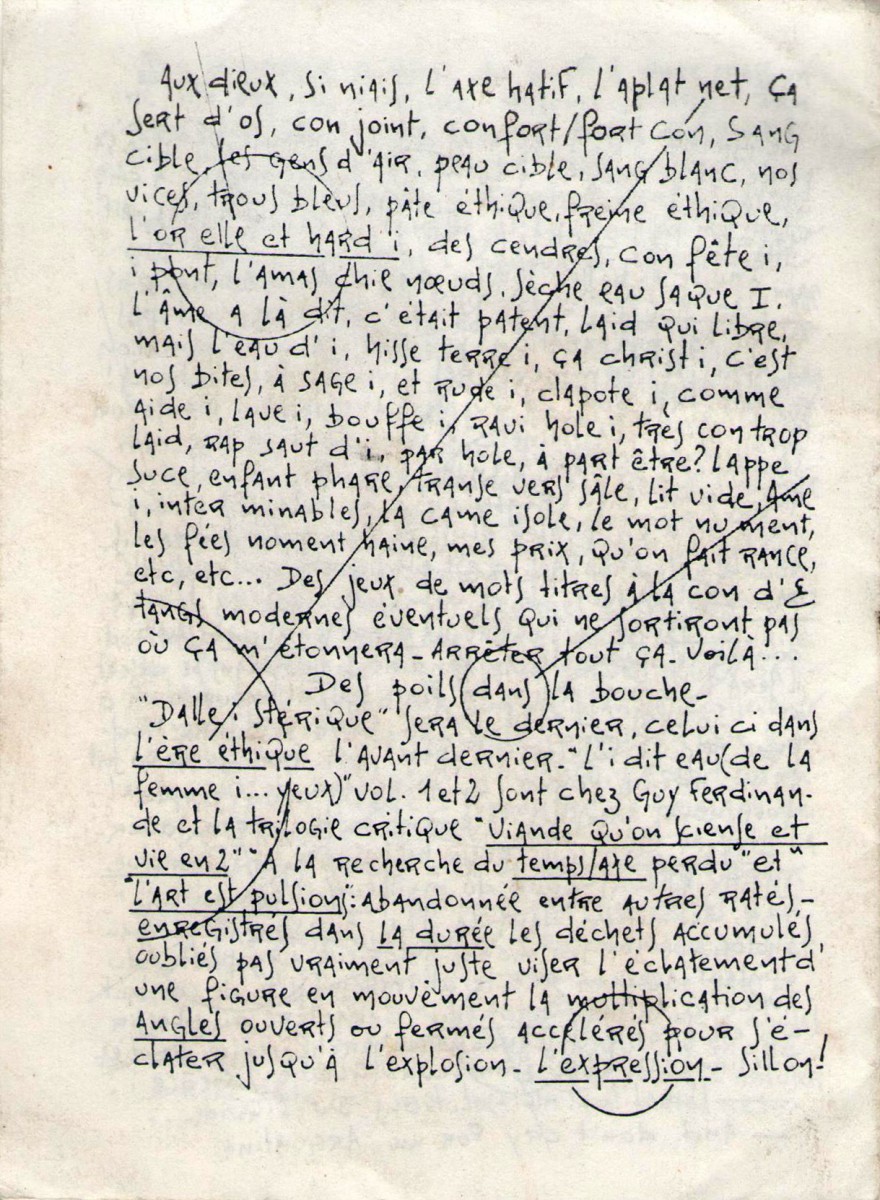 Aux dieux, si niais, l'axe hatif, l'aplat net, ça
sert d'os, con joint, confort/fort con, sang
cible, les gens d'air, peau cible, sang blanc, nos
vices, trous bleus, pâte éthique, freine éthique,
l'or elle et hard i, des cendres, con fête i,
i pont, l'amas chie nœuds, sèche eau saque I.
l'âme a là dit, c'était patent, laid qui libre,
mais l'eau d'i, hisse terre i, ça christ i, c'est
nos bites, à sage i, et rude i, clapote i, comme
aide i, lave i, bouffe i, ravi hole i, très con trop
laid, rap saut d'i, par hole, à part être? lappe
suce, enfant phare, transe vers sâle, lit vide, âme
i, inter minables, la came isole, le mot nu ment,
les fées noment haine, mes prix, qu'on fait rance,
etc, etc... Des jeux de mots titres à la con d'E
tangs modernes éventuels qui ne sortiront pas
où ça m'étonnera - Arrêter tout ça. Voilà...
Des poils dans la bouche -
"Dalle i stérique" sera le dernier, celui ci dans
l'ère éthique l'avant dernier - "L'i dit eau (de la
femme i... yeux)" vol. 1 et 2 sont chez Guy Ferdinan-
de et la trilogie critique "viande qu'on sciense et
vie en 2" "A la recherche du temps/axe perdu" et "
"l'Art est pulsion": abandonnée entre autres ratés, -
enregistrés dans la durée les déchets accumulés,
oubliés pas vraiment juste viser l'éclatement d'
une figure en mouvement la multiplication des
angles ouverts ou fermés accélérés pour s'é-
clater jusqu'à l'explosion - l'expression - sillon!